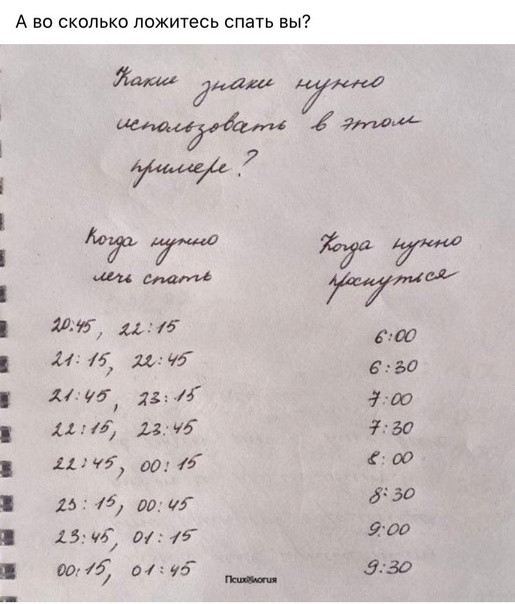 А во сколько ложитесь спать вы?
Какие знаки нужно
использовать в этом
примере?
Когда нужно
лечь спать
Когда нужно
проснуться
20:45, 22:15 6:00
21:15, 22:45 6:30
21:45, 23:15 7:00
22:15, 23:45 7:30
22:45, 00:15 8:00
23:15, 00:45 8:30
23:45, 01:15 9:00
00:15, 01:45 9:30
Психология